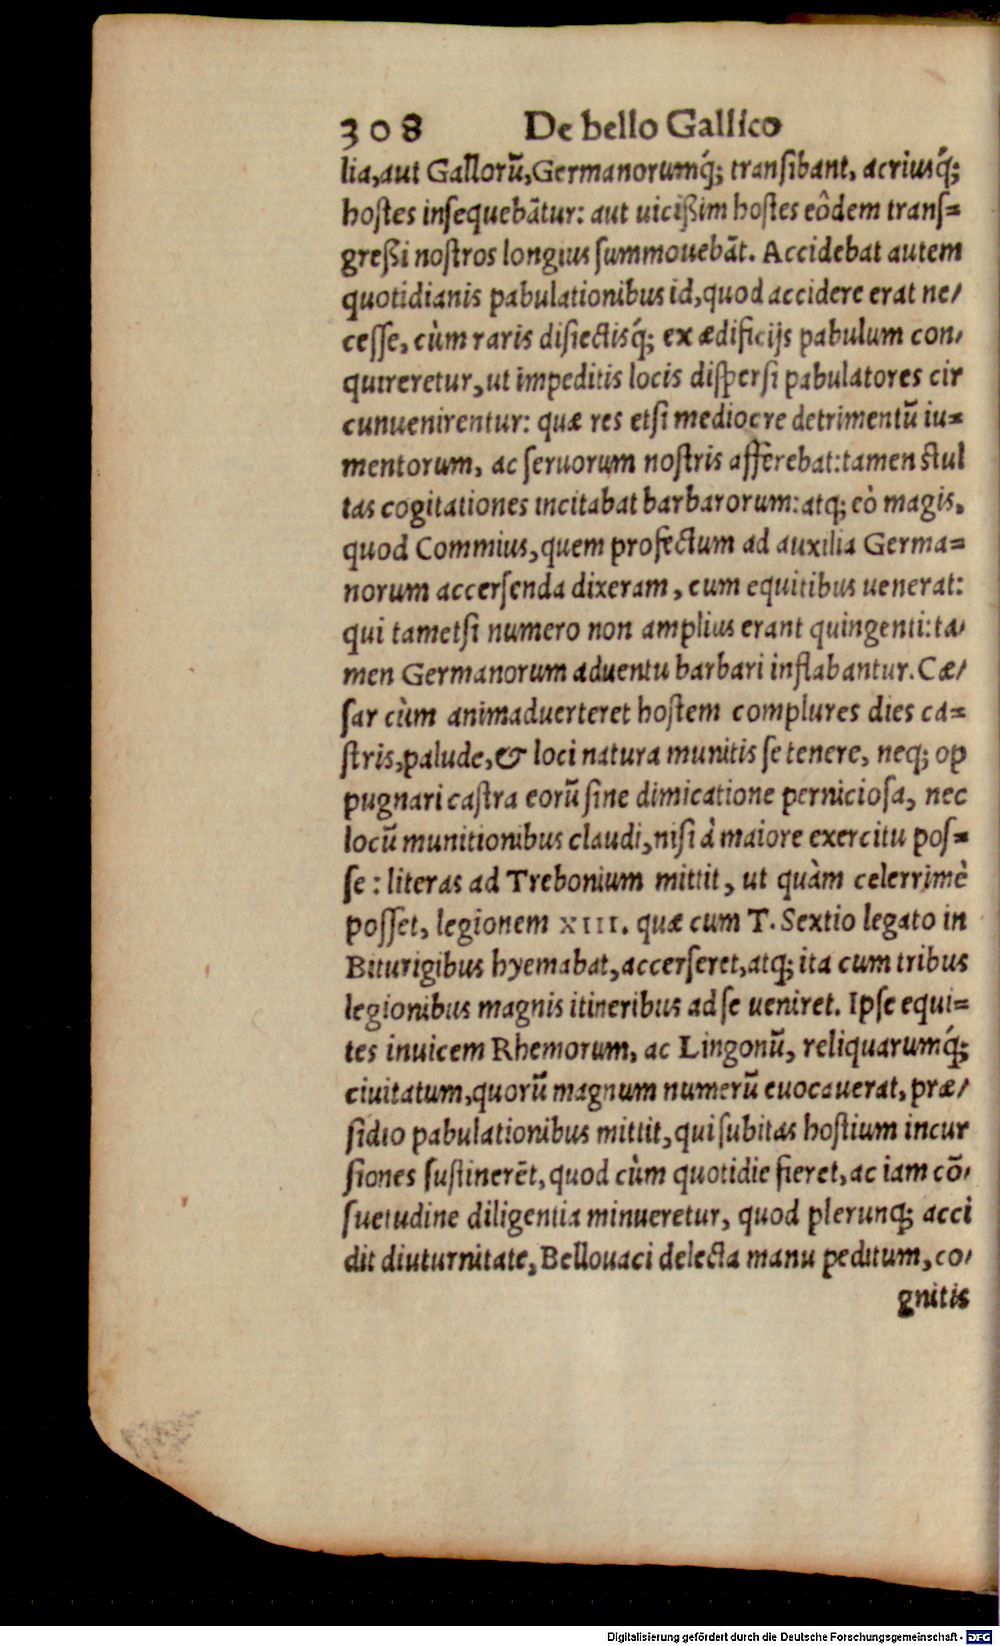 308 De bello Gallico
lia,aut Gallorũ,Germanorumq́; tranſibant, acriusq́;
hoſtes inſequebãtur: aut uicißim hoſtes eôdem tranſ=
greßi noſtros longius ſummouebãt. Accidebat autem
quotidianis pabulationibus id,quod accidere erat ne/
ceſſe, cùm raris diſiectisq́; ex ædificijs pabulum con/
quireretur,ut impeditis locis diſperſi pabulatores cir
cunuenirentur: quæ res etſi mediocre detrimentũ iu=
mentorum, ac ſeruorum noſtris afferebat:tamen ſtul
tas cogitationes incitabat barbarorum:atq; eò magis,
quod Commius,quem profectum ad auxilia Germa=
norum accerſenda dixeram, cum equitibus uenerat:
qui tametſi numero non amplius erant quingenti:ta/
men Germanorum aduentu barbari inflabantur. Cæ/
ſar cùm animaduerteret hoſtem complures dies ca=
ſtris,palude,& loci natura munitis ſe tenere, neq; op
pugnari caſtra eorũ ſine dimicatione pernicioſa, nec
locũ munitionibus claudi,niſi à maiore exercitu poſ=
ſe: literas ad Trebonium mittit, ut quàm celerrimè
poſſet, legionem XIII. quæ cum T. Sextio legato in
Biturigibus hyemabat,accerſeret,atq; ita cum tribus
legionibus magnis itineribus ad ſe ueniret. Ipſe equi=
tes inuicem Rhemorum, ac Lingonũ, reliquarumq́;
ciuitatum,quorũ magnum numerũ euocauerat, præ/
ſidio pabulationibus mittit,qui ſubitas hoſtium incur
ſiones ſuſtinerẽt,quod cùm quotidie fieret,ac iam cõ/
ſuetudine diligentia minueretur, quod plerunq; acci
dit diuturnitate,Bellouaci delecta manu peditum,co/
gnitis
Digitalisierung gefördert durch die Deutsche Forschungsgemeinschaft - DFG